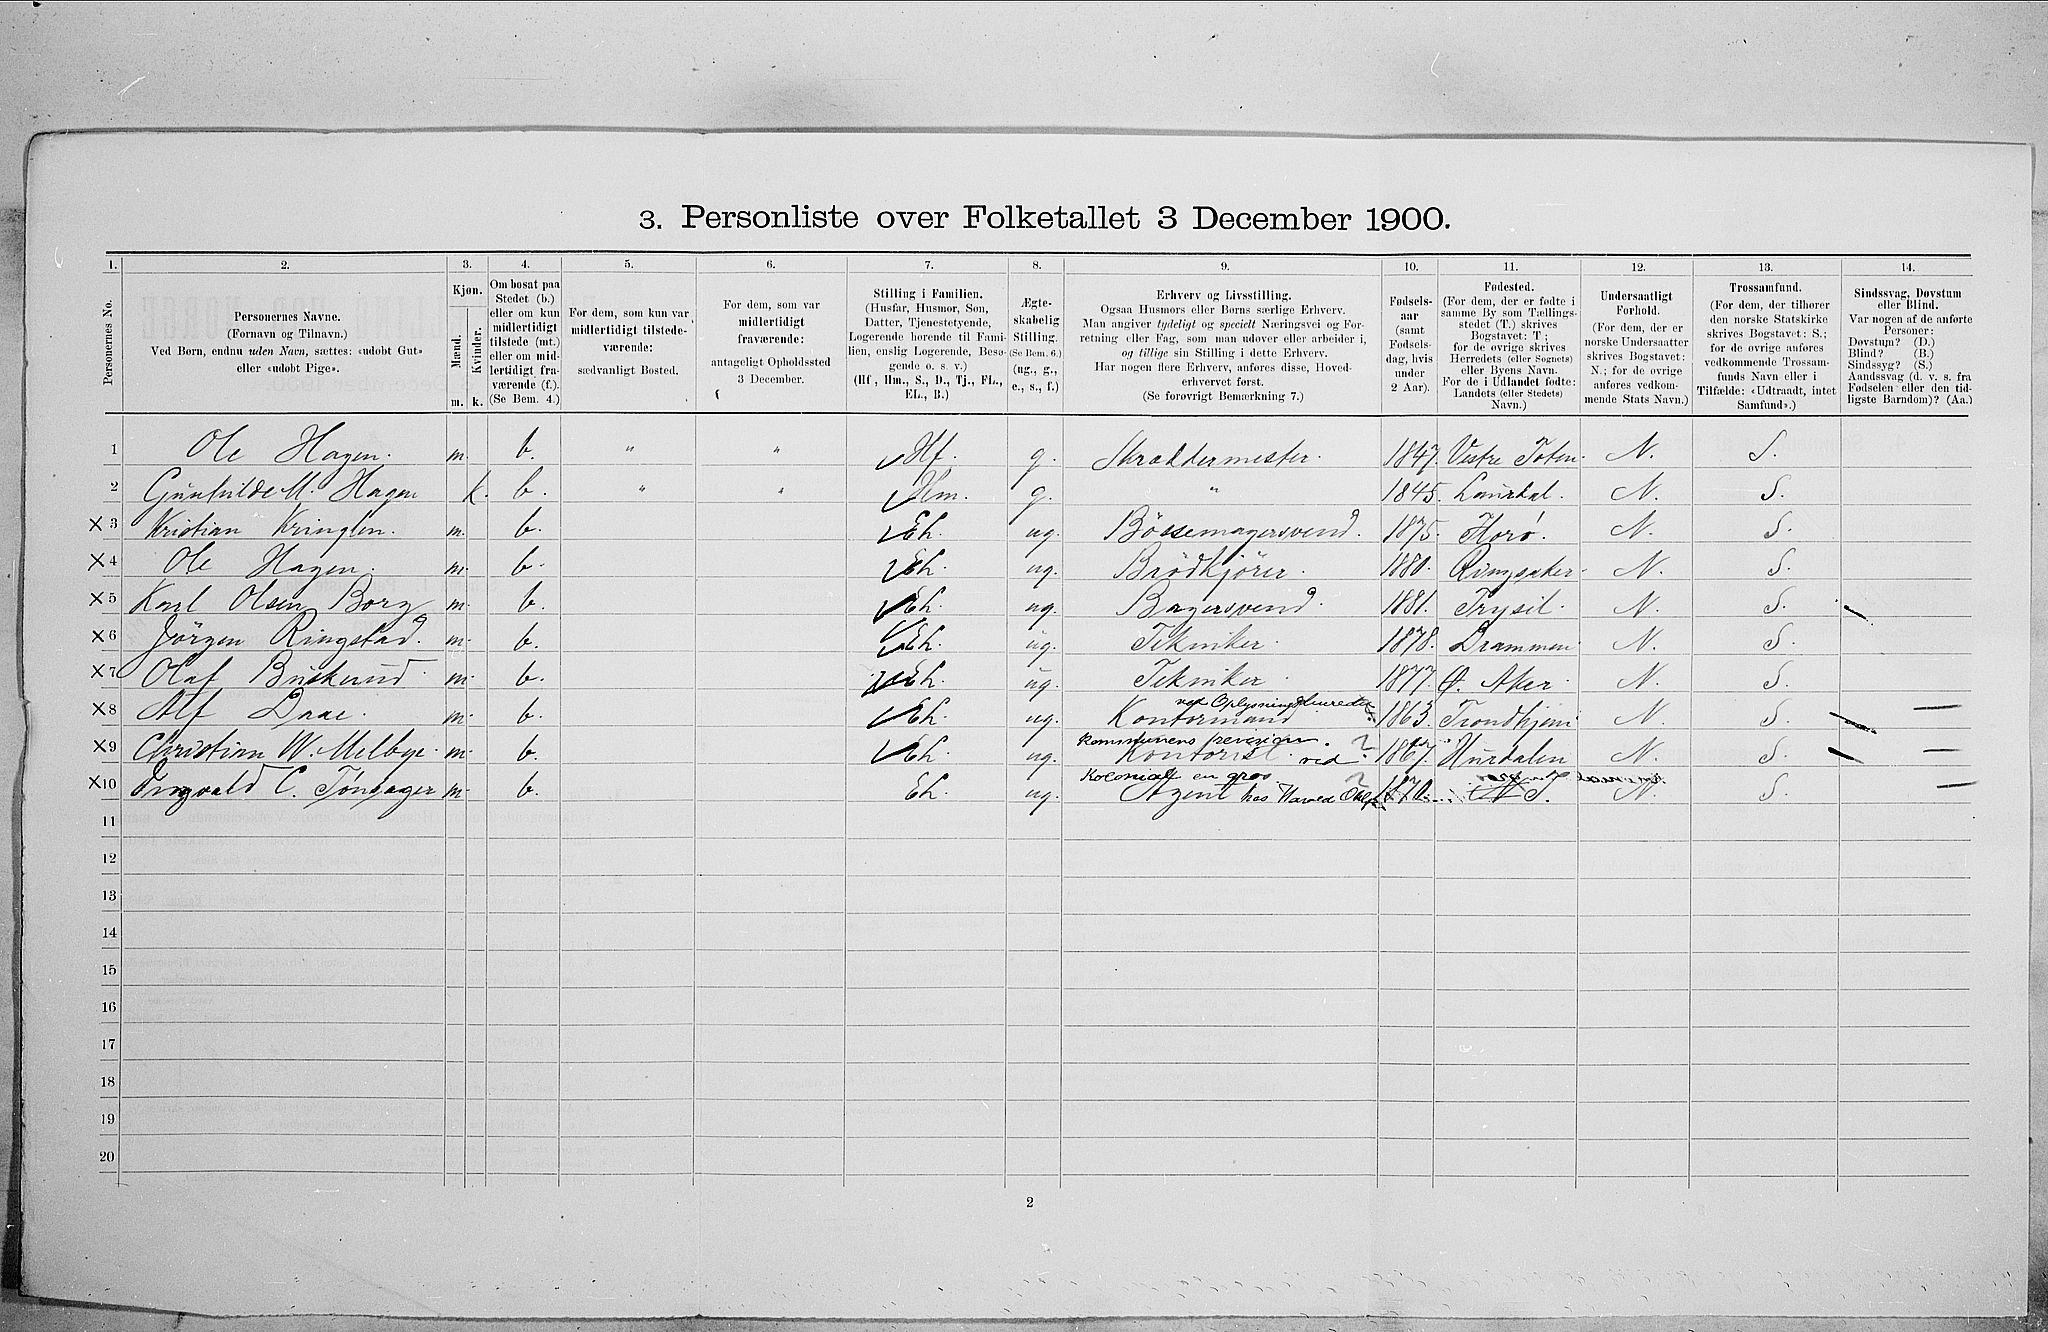 3. Personliste over Folketallet 3 December 1900.
1. 2. 3. 4. 5. 6. 7. 8. 9. 10. 11. 12. 13. 14.
Personernes No.
Personernes Navne.
(Fornavn og Tilnavn.)
Ved Børn, endnu uden Navn, sættes: «udøbt Gut»
eller «udøbt Pige».
Kjøn.
Mænd.
Kvinder.
m. k.
Om bosat paa
Stedet (b.)
eller om kun
midlertidigt
tilstede (mt.)
eller om mid-
lertidigt fra-
værende (f.).
(Se Bem. 4.)
For dem, som kun var
midlertidigt tilstede-
værende:
sædvanligt Bosted.
For dem, som var
midlertidigt
fraværende:
antageligt Opholdssted
3 December.
Stilling i Familien.
(Husfar, Husmor, Søn,
Datter, Tjenestetyende,
Logerende hørende til Fami-
lien, enslig Logerende, Besø-
gende o. s. v.)
(Hf, Hm., S., D., Tj., FL.,
EL., B.)
Ægte-
skabelig
Stilling.
(Se Bem. 6.)
(ug., g.,
e., s., f.)
Erhverv og Livsstilling.
Ogsaa Husmors eller Børns særlige Erhverv.
Man angiver tydeligt og specielt Næringsvei og For-
retning eller Fag, som man udøver eller arbeider i,
og tillige sin Stilling i dette Erhverv.
Har nogen flere Erhverv, anføres disse, Hoved-
erhvervet først.
(Se forøvrigt Bemærkning 7.)
Fødsels-
aar
(samt
Fødsels-
dag, hvis
under
2 Aar).
Fødested.
(For dem, der er fødte i
samme By som Tællings-
stedet (T.) skrives
Bogstavet: T;
for de øvrige skrives
Herredets (eller Sognets)
eller Byens Navn.
For de i Udlandet fødte:
Landets (eller Stedets)
Navn.)
Undersaatligt
Forhold.
(For dem, der er
norske Undersaatter
skrives Bogstavet:
N.; for de øvrige
anføres vedkom-
mende Stats Navn.)
Trossamfund.
(For dem, der tilhører
den norske Statskirke
skrives Bogstavet: S.;
for de øvrige anføres
vedkommende Trossam-
funds Navn eller i
Tilfælde: «Udtraadt, intet
Samfund».)
Sindssvag, Døvstum
eller Blind.
Var nogen af de anførte
Personer:
Døvstum? (D.)
Blind? (B.)
Sindssyg? (S.)
Aandssvag (d. v. s. fra
Fødselen eller den tid-
ligste Barndom)? (Aa.)
1 Ole Hagen. m. b. " " Hf. g. Skræddermester. 1847. Vestre Toten. N. S.
2 Gunhilde M. Hagen k. b. " " Hm. g. " 1845. Laurdal. N. S.
X 3 Kristian Kringlen. m. b. Eh. ug. Bössemagersvend. 1875. Horø. N. S.
X 4 Ole Hagen. m. b. Eh. ug. Brödkjörer. 1880. Ringsaker. N. S.
X 5 Karl Olsen Borg m. b. Eh. ug. Bagersvend. 1881. Trysil. N. S.
X 6 Jörgen Ringstad. m. b. Eh. ug. Tekniker. 1878. Drammen N. S.
X 7 Olaf Buskerud m. b. Eh. ug. Tekniker. 1877. Ø. Aker. N. S.
ved Oplysningsbureauet
X 8 Alf Daae. m. b. Eh. ug. Kontormand 1863. Trondhjem N. S.
Kommunens revision.
X 9 Christian W. Melbye. m. b. Eh. ug. Kontorist ved ? 1867. Hurdalen N. S.
Kolonial en gros
X 10 Ingvald C. Tønsager m. b. Eh. ug. Agent hos 1870. N. S.
11
12
13
14
15
16
17
18
19
20
2